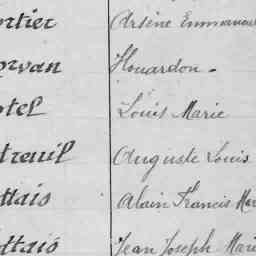 ortier Arsène Emmanuel
orvan Houardon.
otel Louis Marie
treuil Auguste Louis
ttais Alain Francis Mar
ttais Jean Joseph Marie